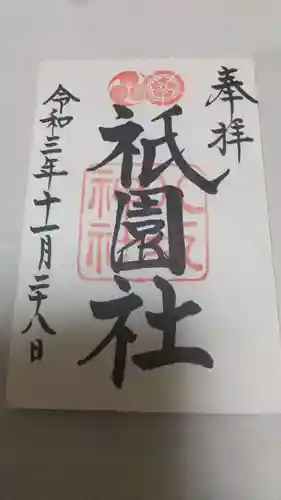 奉拝
祇園社
令和三年十一月二十八日